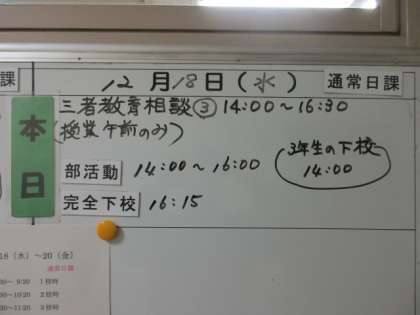 課 12月18日(水) 通常日課
本日
三者教育相談③ 14:00～16:30
(授業午前のみ)
部活動 14:00～16:00
3年生の下校
14:00
完全下校 16:15
18(水)～20(金)
通常日課
～ 9:20 1校時
～10:20 2校時
～11:20 3校時